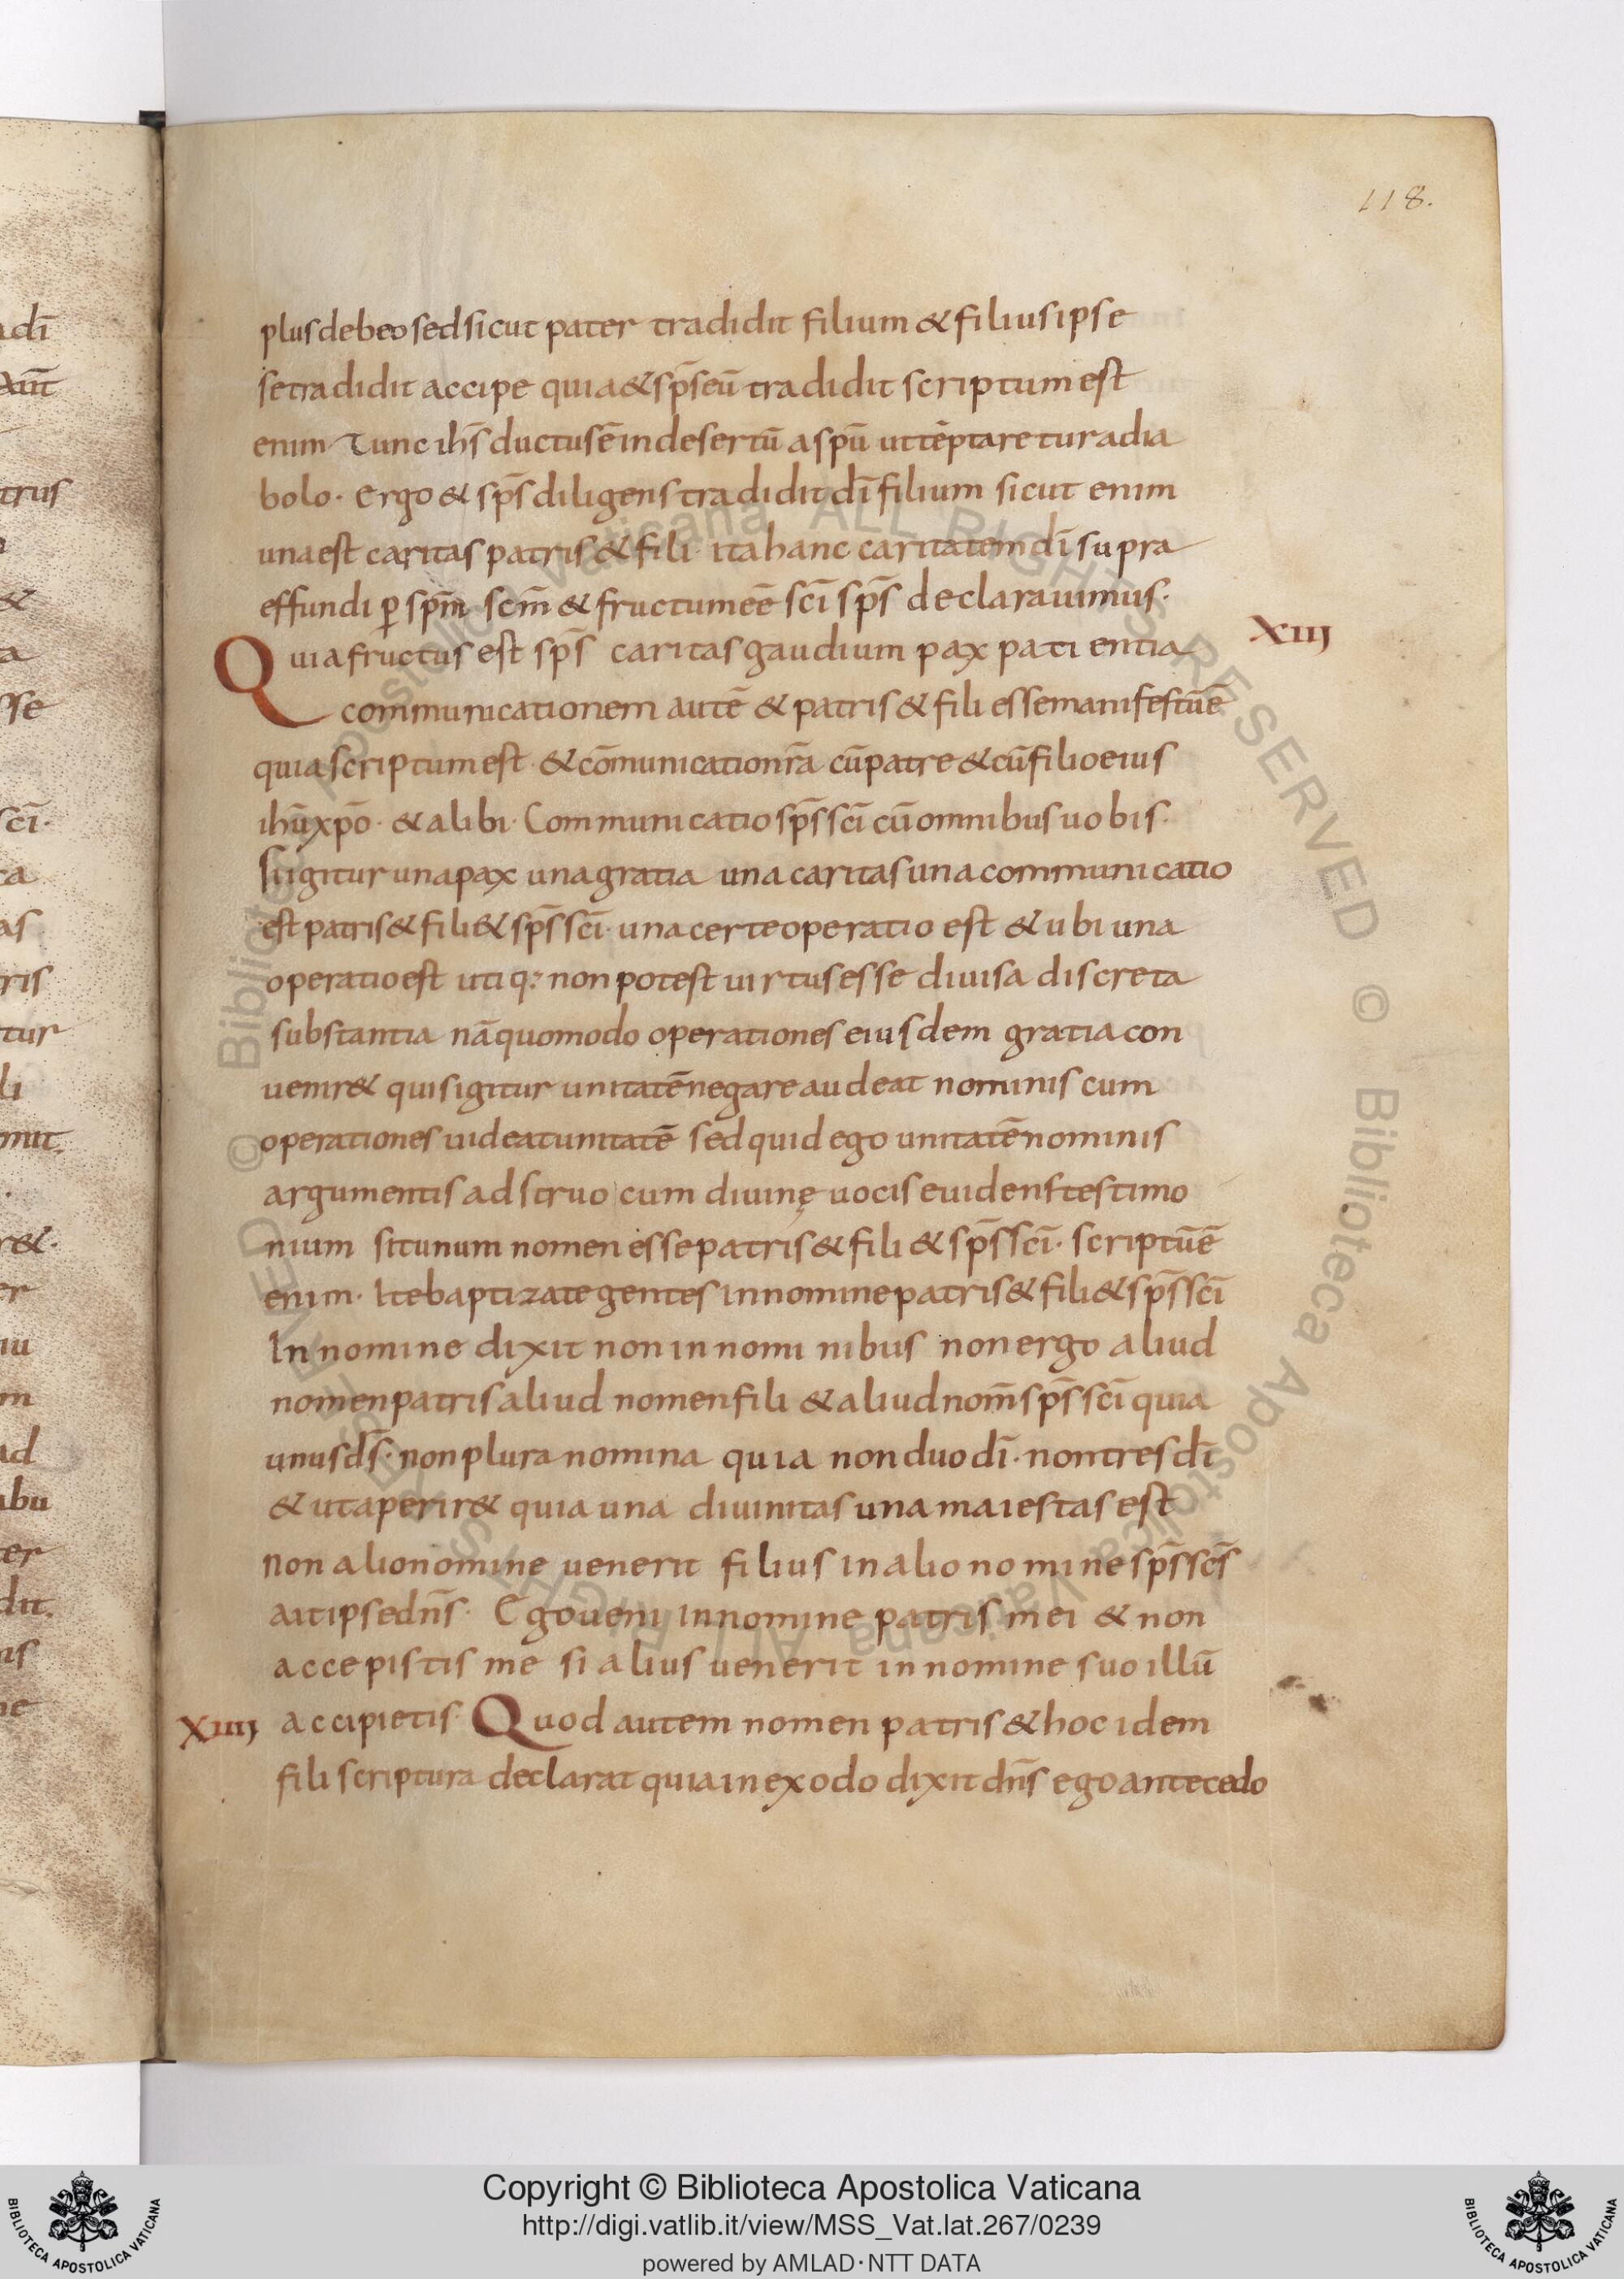 118.
plus debeo sed sicut pater tradidit filium & filius ipse
se tradidit accipe quia & sp̄s eū tradidit scriptum est
enim Tunc ih̄s ductus ē in desertū a spū ut tēptaretur a dia
bolo· ergo & sp̄s diligens tradidit dī filium sicut enim
una est caritas patris & fili· ita hanc caritatem dī supra
effundi ꝑ sp̄m sc̄m & fructum eē scī sp̄s declarauimus·
XIIJ
Quia fructus est sp̄s caritas gaudium pax patientia
communicationem autē & patris & fili esse manifestū ē
quia scriptum est· & cōmunicatio nr̄a cū patre & cū filio eius
ihū xpō· & alibi· Communicatio sp̄s scī cū omnibus uobis·
Si igitur una pax una gratia una caritas una communicatio
est patris & fili & sp̄s scī· una certe operatio est & ubi una
operatio est utiq: non potest uirtus esse diuisa discreta
substantia nā quomodo operationes eiusdem gratia con
uenir& quis igitur unitatē negare audeat nominis cum
operationes uideat unitatē sed quid ego unitatē nominis
argumentis adstruo cum diuinę uocis euidens testimo
nium sit unum nomen esse patris & fili & sp̄s scī· scriptū ē
enim· Ite baptizate gentes in nomine patris & fili & sp̄s scī
In nomine dixit non in nominibus non ergo aliud
nomen patris aliud nomen fili & aliud nom̄ sp̄s scī quia
unus d̄s· non plura nomina quia non duo dī· non tres dī
& ut aperir& quia una diuinitas una maiestas est
non alio nomine uenerit filius in alio nomine sp̄s sc̄s
ait ipse dn̄s· Ego ueni in nomine patris mei & non
accepistis me si alius uenerit in nomine suo illū
XIIIJ
accipietis· Quod autem nomen patris & hoc idem
fili scriptura declarat quia in exodo dixit dn̄s ego antecedo
Copyright © Biblioteca Apostolica Vaticana
http://digi.vatlib.it/view/MSS_Vat.lat.267/0239
powered by AMLAD · NTT DATA
BIBLIOTECA APOSTOLICA VATICANA
BIBLIOTECA APOSTOLICA VATICANA